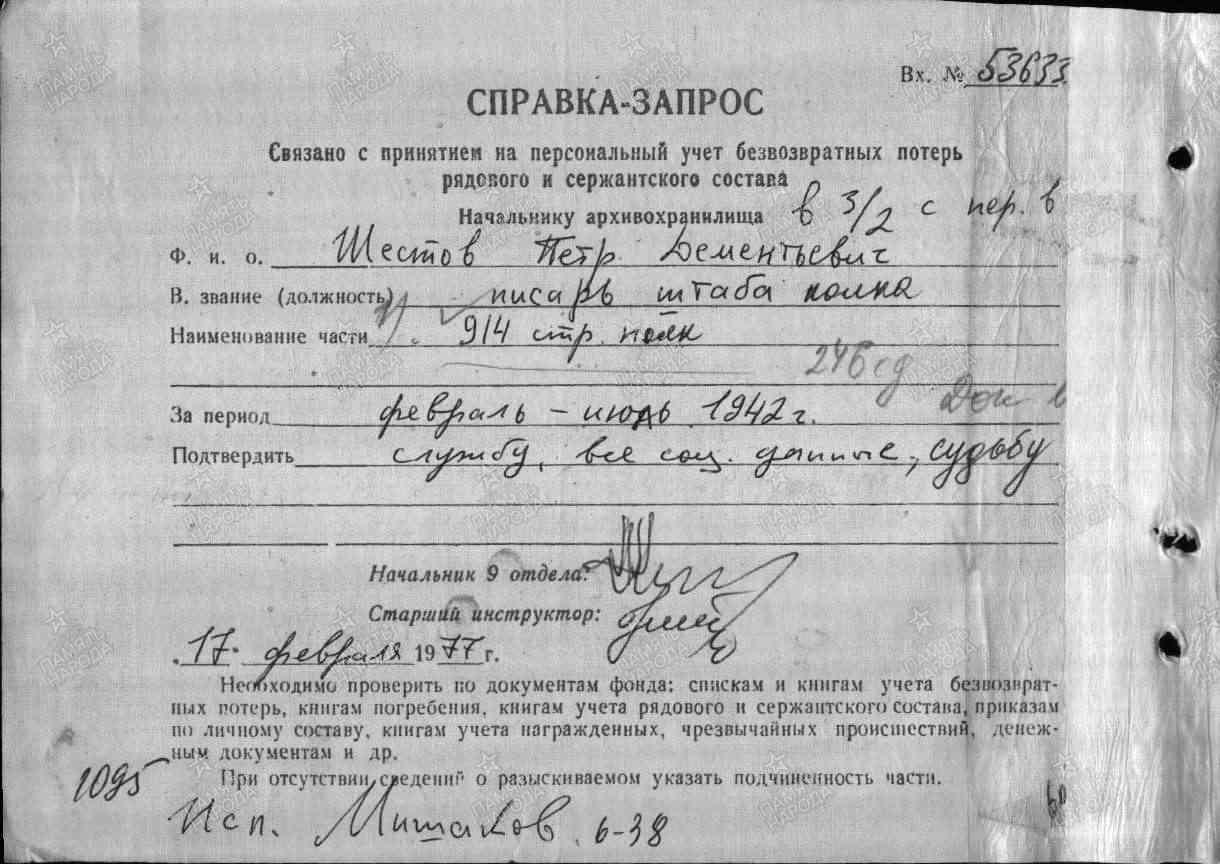 Вх. № 53633
СПРАВКА-ЗАПРОС
Связано с принятием на персональный учет безвозвратных потерь
рядового и сержантского состава
Начальнику архивохранилища в 3/2 с пер. в
Ф. и. о. Шестов Петр Дементьевич
В. звание (должность) писарь штаба полка
Наименование части 914 стр. полк
246 сд
Док в
За период февраль – июль 1942 г.
Подтвердить службу, все соц. данные, судьбу
Начальник 9 отдела:
Старший инструктор:
17 февраля 1977 г.
Необходимо проверить по документам фонда: спискам и книгам учета безвозврат-
ных потерь, книгам погребения, книгам учета рядового и сержантского состава, приказам
по личному составу, книгам учета награжденных, чрезвычайных происшествий, денеж-
ным документам и др.
При отсутствии сведений о разыскиваемом указать подчиненность части.
1095
Исп. Мишаков. 6-38
ПАМЯТЬ НАРОДА